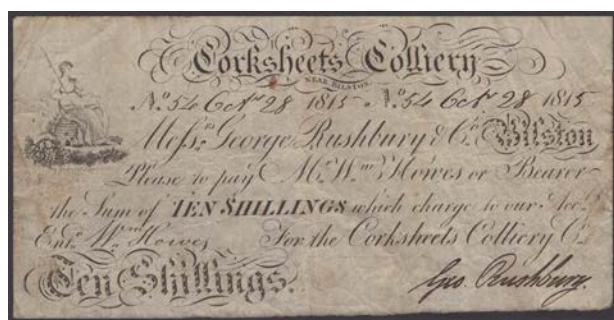 Corksheets Colliery
NEAR BILSTON
No. 54 Octr. 28 1815 No. 54 Octr. 28 1815
Messrs. George Rushbury & Co. Bilston
Please to pay Mr. Wm. Howes or Bearer
the Sum of TEN SHILLINGS which charge to our Acct.
Entd. Wm. Howes For the Corksheets Colliery Co.
Ten Shillings.
Geo. Rushbury